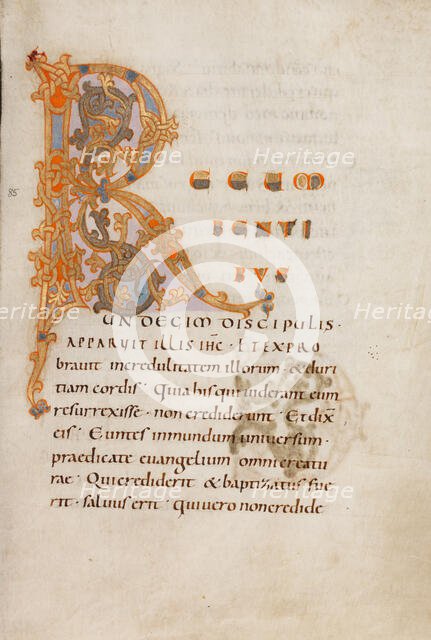 R ECUM
BENTI
BVS
85
UNDECIM DISCIPULIS·
APPARUIT ILLIS IHC· ET EXPRO
bravit incredulitatem illorum · & duri
tiam cordis · Quia his qui viderant eum
resurrexisse · non crediderunt · Et dix̄
eis · Euntes in mundum universum ·
praedicate evangelium omni creatu
rae · Qui crediderit & baptizatus fue
rit · salvus erit · qui vero non credide
Heritage
Heritage
Heritage
Heritage
Heritage
Heritage
Heritage
Heritage